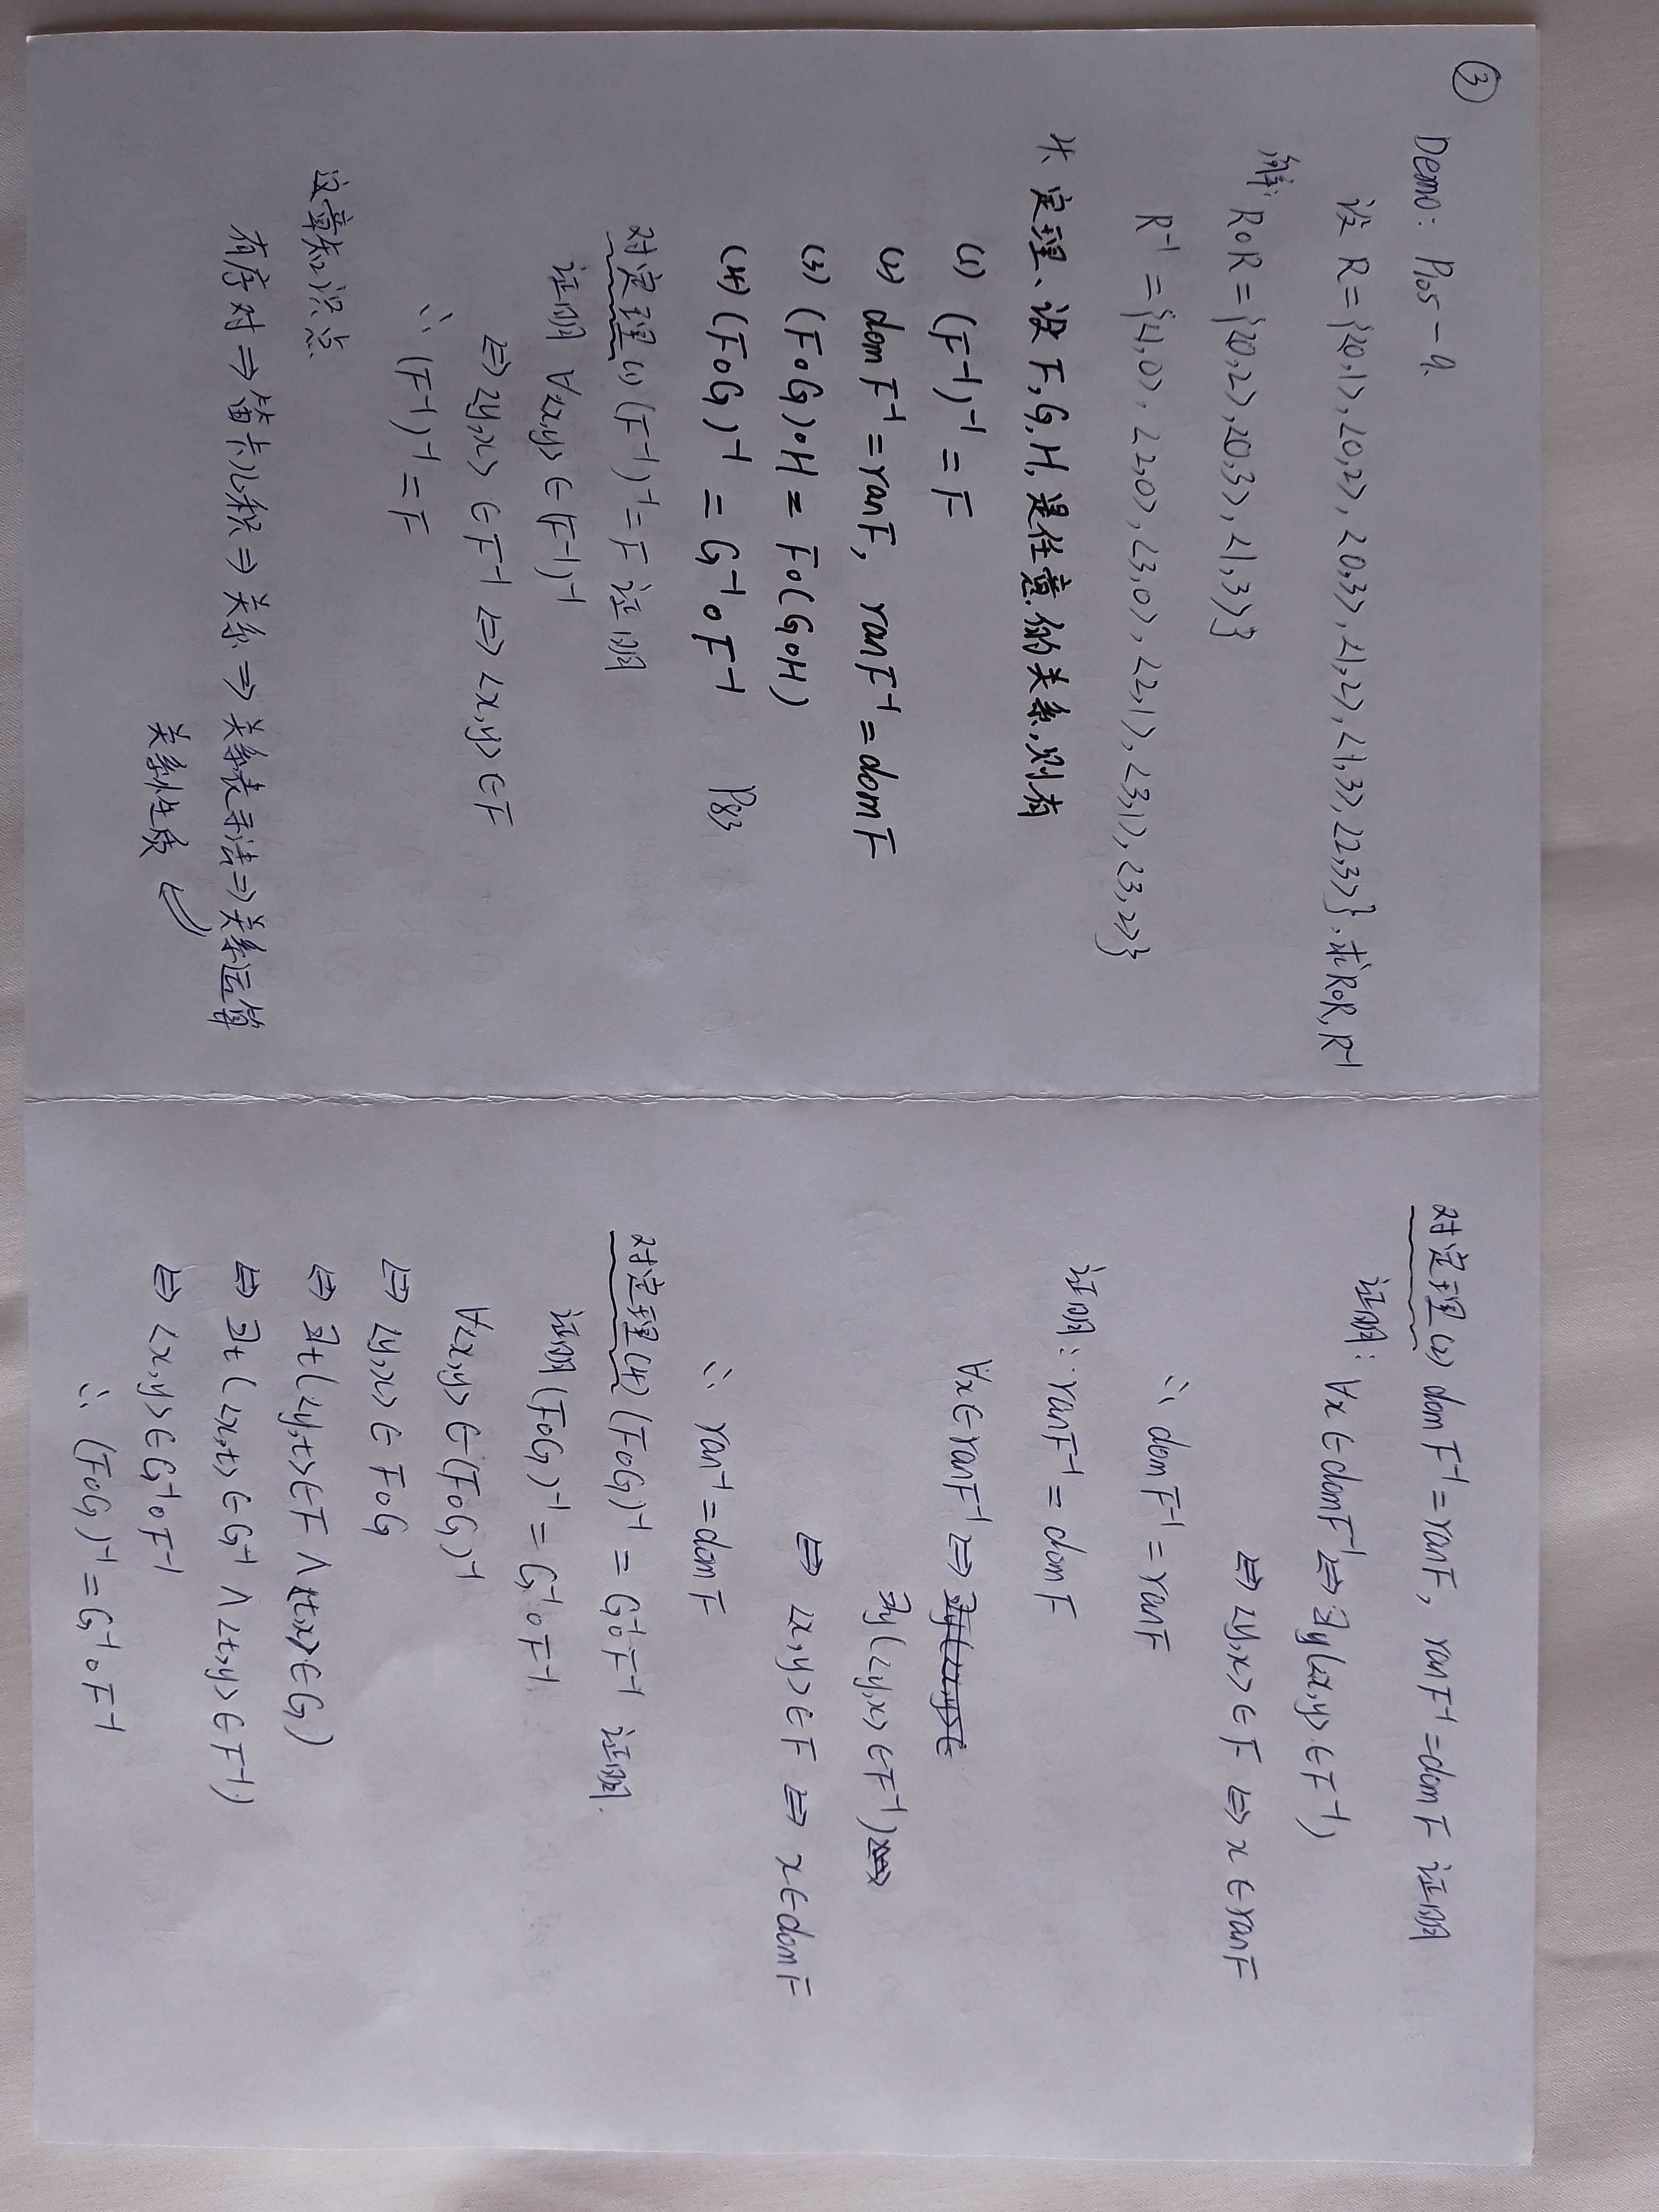 ③
Demo: P105-9.
设 R={<0,1>,<0,2>,<0,3>,<1,2>,<1,3>,<2,3>},求R∘R,R⁻¹
解:
R∘R={<0,2>,<0,3>,<1,3>}
R⁻¹={<1,0>,<2,0>,<3,0>,<2,1>,<3,1>,<3,2>}
4、定理、设F,G,H,是任意的关系,则有
(1) (F⁻¹)⁻¹=F
(2) dom F⁻¹=ranF, ranF⁻¹=domF
(3) (F∘G)∘H = F∘(G∘H)
(4) (F∘G)⁻¹ = G⁻¹∘F⁻¹ P83
对定理(1) (F⁻¹)⁻¹=F 证明
证明 ∀<x,y>∈(F⁻¹)⁻¹
⇔<y,x>∈F⁻¹⇔<x,y>∈F
∴ (F⁻¹)⁻¹=F
这章知识点
有序对⇒笛卡儿积⇒关系⇒关系表示法⇒关系运算
关系性质 ⇙
对定理(2) dom F⁻¹=ranF, ranF⁻¹=domF 证明
证明: ∀x∈domF⁻¹⇔∃y(<x,y>∈F⁻¹)
⇔<y,x>∈F ⇔ x∈ranF
∴ dom F⁻¹=ranF
证明: ranF⁻¹= domF
∀x∈ranF⁻¹⇔ ∃y(<x,y>∈
∃y(<y,x>∈F⁻¹)⇔
⇔ <x,y>∈F ⇔ x∈domF
∴ ran⁻¹=domF
对定理(4) (F∘G)⁻¹ = G⁻¹∘F⁻¹ 证明.
证明 (F∘G)⁻¹= G⁻¹∘F⁻¹
∀<x,y>∈(F∘G)⁻¹
⇔ <y,x>∈F∘G
⇔ ∃t(<y,t>∈F∧<t,x>∈G)
⇔ ∃t(<x,t>∈G⁻¹∧<t,y>∈F⁻¹)
⇔ <x,y>∈G⁻¹∘F⁻¹
∴ (F∘G)⁻¹=G⁻¹∘F⁻¹